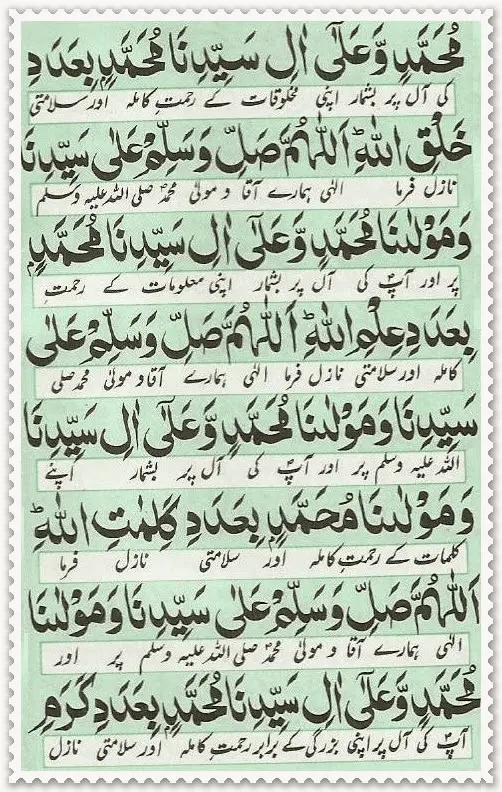 مُحَمَّدٍ وَّعَلٰٓى اٰلِ سَيِّدِنَا مُحَمَّدٍۭ بِعَدَدِ
کی آل پر بشمار اپنی مخلوقات کے رحمتِ کاملہ اور سلامتی
خَلْقِ اللّٰهِ ط اَللّٰهُمَّ صَلِّ وَسَلِّمْ عَلٰى سَيِّدِنَا
نازل فرما الٰہی ہمارے آقا و مولیٰ محمد صلی اللہ علیہ وسلم
وَمَوْلٰىنَا مُحَمَّدٍ وَّعَلٰٓى اٰلِ سَيِّدِنَا مُحَمَّدٍۭ
پر اور آپؐ کی آل پر بشمار اپنی معلومات کے رحمتِ
بِعَدَدِ عِلْمِ اللّٰهِ ط اَللّٰهُمَّ صَلِّ وَسَلِّمْ عَلٰى
کاملہ اور سلامتی نازل فرما الٰہی ہمارے آقا و مولیٰ محمد صلی
سَيِّدِنَا وَمَوْلٰىنَا مُحَمَّدٍ وَّعَلٰٓى اٰلِ سَيِّدِنَا
اللہ علیہ وسلم پر اور آپؐ کی آل پر بشمار اپنے
وَمَوْلٰىنَا مُحَمَّدٍۭ بِعَدَدِ كَلِمٰتِ اللّٰهِ ط
کلمات کے رحمتِ کاملہ اور سلامتی نازل فرما
اَللّٰهُمَّ صَلِّ وَسَلِّمْ عَلٰى سَيِّدِنَا وَمَوْلٰىنَا
الٰہی ہمارے آقا و مولیٰ محمدؐ صلی اللہ علیہ وسلم پر اور
مُحَمَّدٍ وَّعَلٰٓى اٰلِ سَيِّدِنَا مُحَمَّدٍۭ بِعَدَدِ كَرَمِ
آپؐ کی آل پر اپنی بزرگی کے برابر رحمتِ کاملہ اور سلامتی نازل